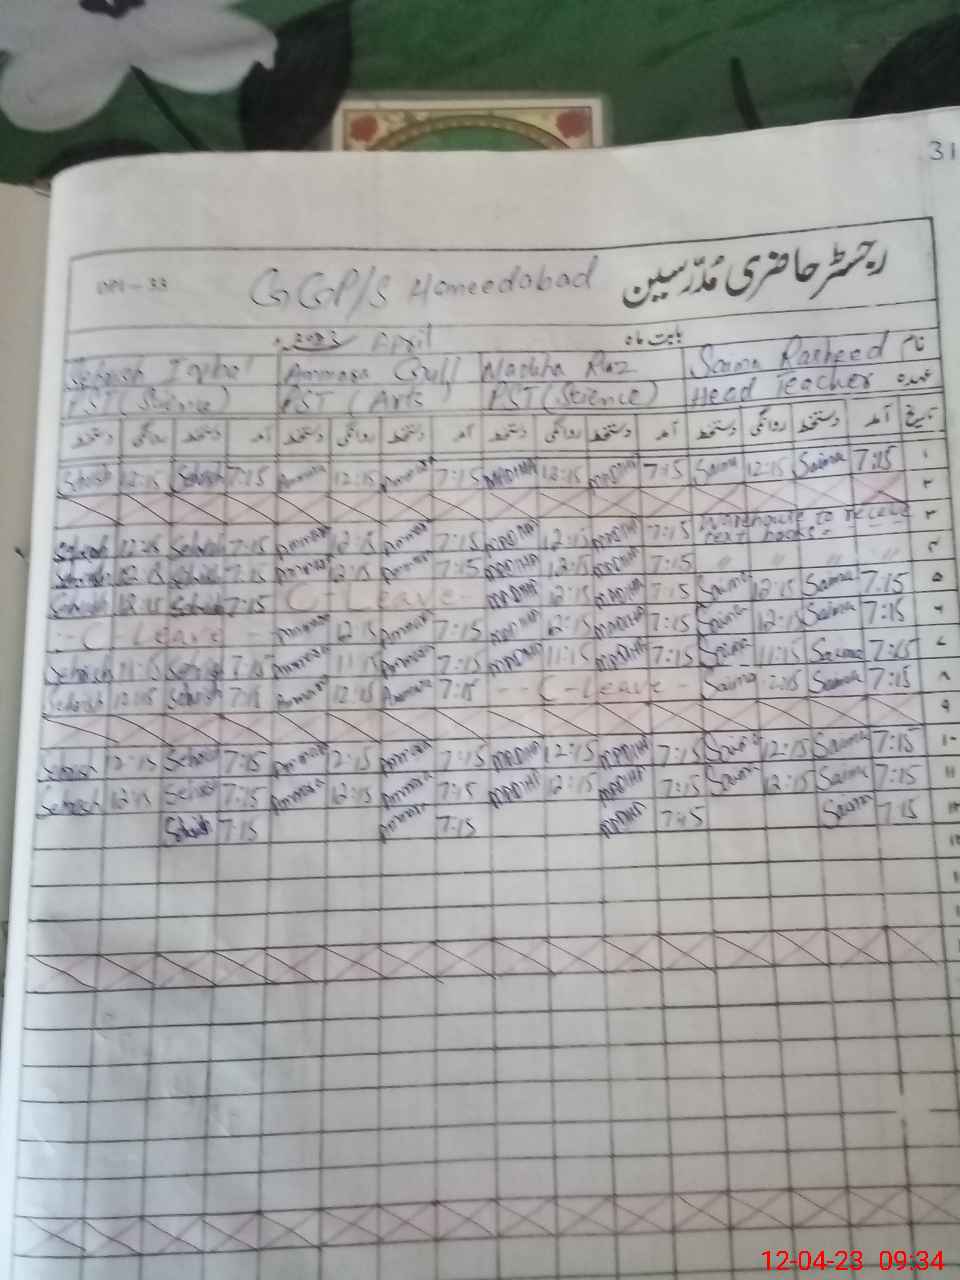 31
DPI-33 GGP/S Hameedabad رجسٹر حاضری مُدرّسین
2023 April بابت ماہ
Sehrish Iqbal Ammara Gull Nadiha Riaz Saima Rasheed نام
PST (Science) PST (Arts) PST (Science) Head Teacher عہدہ
دستخط روانگی دستخط آمد دستخط روانگی دستخط آمد دستخط روانگی دستخط آمد دستخط روانگی دستخط آمد تاریخ
Sehrish 12:15 Sehrish 7:15 Ammara 12:15 Ammara 7:15 12:15 7:15 Saima 12:15 Saima 7:15 ۱
۲
Sehrish 12:15 Sehrish 7:15 Ammara 12:15 Ammara 7:15 12:15 7:15 Warehouse to receive text books- ۳
Sehrish 12:15 Sehrish 7:15 Ammara 12:15 Ammara 7:15 12:15 7:15 " " " " ۴
Sehrish 12:15 Sehrish 7:15 C-Leave- 12:15 7:15 Saima 12:15 Saima 7:15 ۵
-- C-Leave - Ammara 12:15 Ammara 7:15 12:15 7:15 Saima 12:15 Saima 7:15 ۶
Sehrish 11:15 Sehrish 7:15 Ammara 11:15 Ammara 7:15 11:15 7:15 Saima 11:15 Saima 7:15 ۷
Sehrish 12:15 Sehrish 7:15 Ammara 12:15 Ammara 7:15 -- C-Leave - Saima 12:15 Saima 7:15 ۸
۹
Sehrish 12:15 Sehrish 7:15 Ammara 12:15 Ammara 7:15 12:15 7:15 Saima 12:15 Saima 7:15 ۱۰
Sehrish 12:15 Sehrish 7:15 Ammara 12:15 Ammara 7:15 12:15 7:15 Saima 12:15 Saima 7:15 ۱۱
Sehrish 7:15 Ammara 7:15 7:15 Saima 7:15 ۱۲
12-04-23 09:34